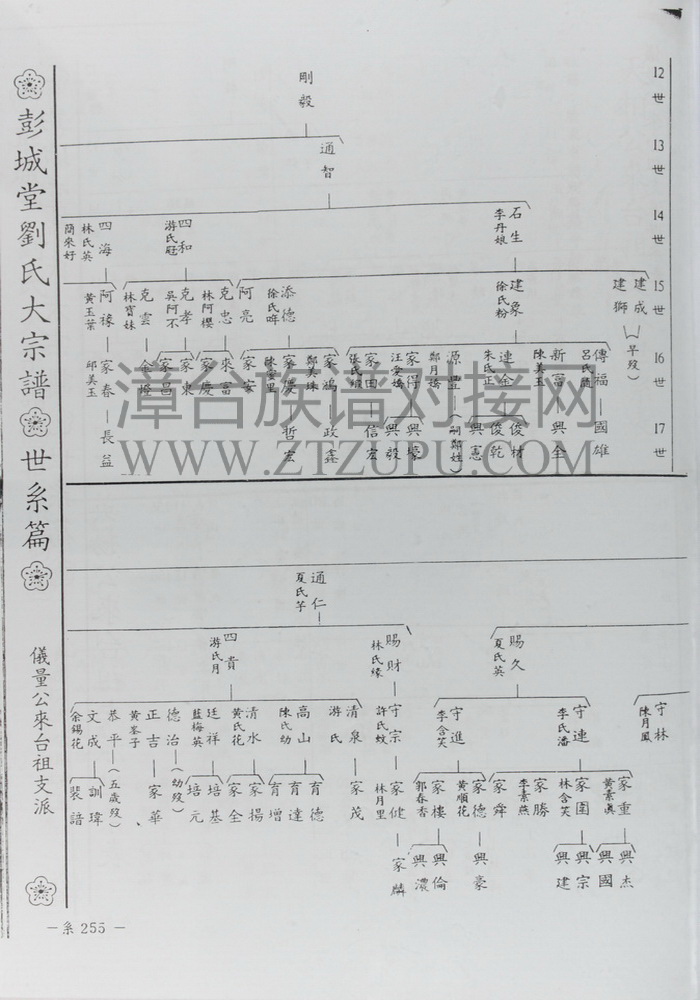 彭城堂劉氏大宗譜
世系篇
儀量公來台祖支派
系 255
12世
13世
14世
15世
16世
17世
剛毅
通智
石生
李丹娘
四和
游氏
四海
林氏英
簡來好
建成
建獅
(早歿)
建象
徐氏粉
添德
徐氏
阿亮
克忠
林阿櫻
克孝
吳阿不
克雲
林寶妹
阿祿
黃玉葉
傳福
呂氏
新富
陳美玉
連金
朱氏正
源豐
鄭月嬌
(嗣鄭姓)
家得
汪愛嬌
家田
張氏
家鴻
鄭美珠
家慶
家安
來富
家慶
家東
家昌
金燈
家春
邱美玉
國雄
興全
俊材
俊乾
興憲
興壕
興毅
信宏
政鑫
哲宏
長益
漳台族谱对接网
WWW.ZTZUPU.COM
通仁
夏氏芊
賜久
夏氏英
賜財
林氏緣
四貴
游氏月
守林
陳月鳳
守連
李氏潘
守進
李含笑
守宗
許氏蚊
清泉
游氏
高山
陳氏幼
清水
黃氏花
廷祥
藍梅英
德治
(幼歿)
正吉
黃峯子
恭平
(五歲歿)
文成
余錫花
家重
黃素真
家圍
林含笑
家勝
李素燕
家舜
家德
黃順花
家樓
郭春香
家健
林月里
家茂
育德
育達
育增
家揚
家全
培基
培元
家華
訓瑋
裴諳
興杰
興國
興宗
興建
興豪
興倫
興濃
家麟